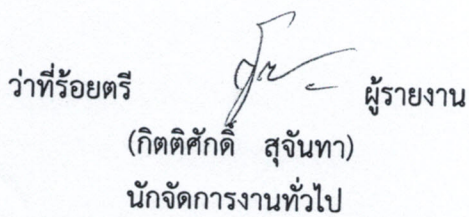 ว่าที่ร้อยตรี ผู้รายงาน
(กิตติศักดิ์ สุจันทา)
นักจัดการงานทั่วไป